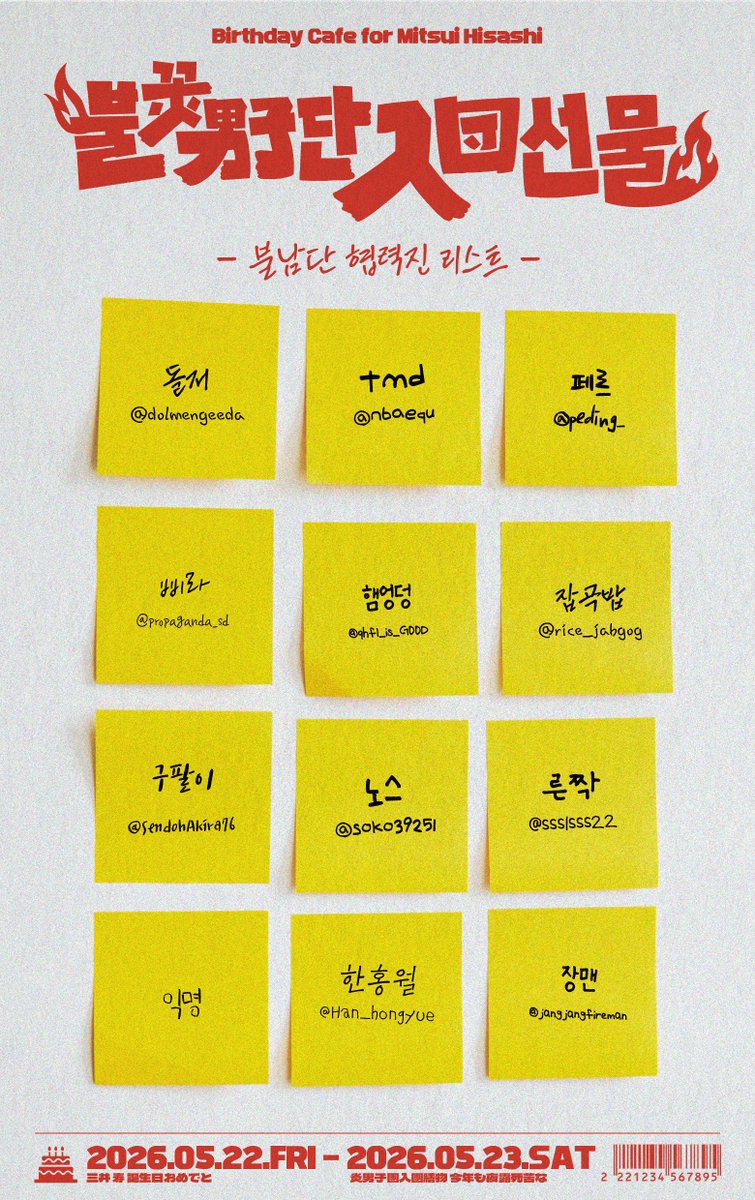 Birthday Cafe for Mitsui Hisashi
불꽃男子단入団선물
- 불남단 협력진 리스트 -
돌저
@dolmengeeda
tmd
@nbaequ
페르
@peding_
삐라
@propaganda_sd
햄엉덩
@qhfl_is_GOOD
잡곡밥
@rice_jabgog
구팔이
@SendohAkira76
노스
@soko39251
륜짝
@sss1sss22
익명
한홍월
@Han_hongyue
장맨
@jangjangfireman
2026.05.22.FRI - 2026.05.23.SAT
三井 寿 誕生日おめでと
炎男子団入団膳物 今年も夜露死苦な
2 221234 567895